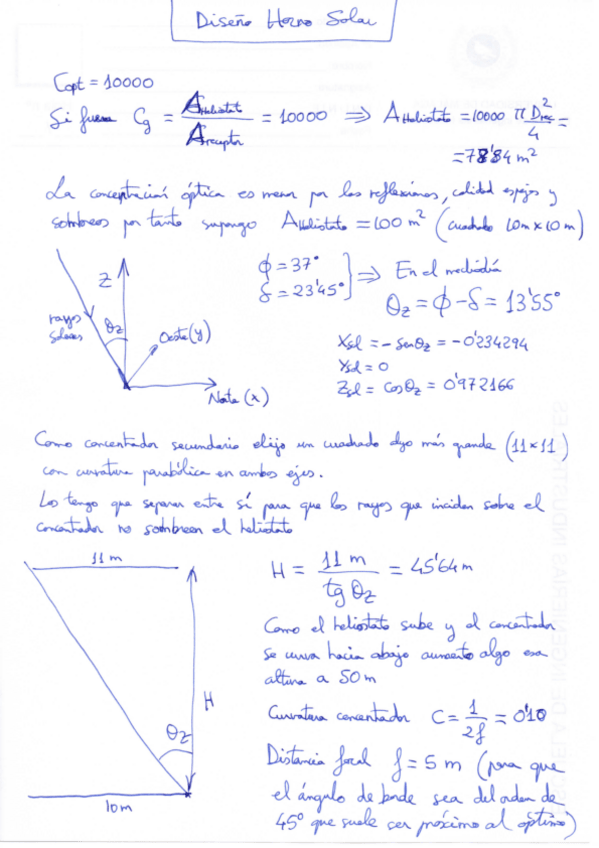 Diseño Horno Solar
Copt = 10000
Si fuera Cg = AHeliostato / Areceptor = 10000 ⇒ AHeliostato = 10000 π Drec² / 4 =
= 78'84 m²
La concentración óptica es menor por las reflexiones, calidad espejos y
sombreos por tanto supongo AHeliostato = 100 m² (cuadrado 10m x 10 m)
Z
rayos
solares
θz
Oeste (y)
Norte (x)
ϕ = 37°
δ = 23'45°
⇒ En el mediodía
θz = ϕ - δ = 13'55°
Xsol = - senθz = - 0'234294
Ysol = 0
Zsol = cosθz = 0'972166
Como concentrador secundario elijo un cuadrado algo más grande (11x11)
con curvatura parabólica en ambos ejes.
Los tengo que separar entre sí para que los rayos que inciden sobre el
concentrador no sombreen el heliostato
11 m
H
θz
10m
H = 11 m / tg θz = 45'64 m
Como el heliostato sube y el concentrador
se curva hacia abajo aumento algo esa
altura a 50 m
Curvatura concentrador C = 1 / 2f = 0'10
Distancia focal f = 5 m (para que
el ángulo de borde sea del orden de
45° que suele ser próximo al óptimo)
ESCUELA DE INGENIERÍAS INDUSTRIALES